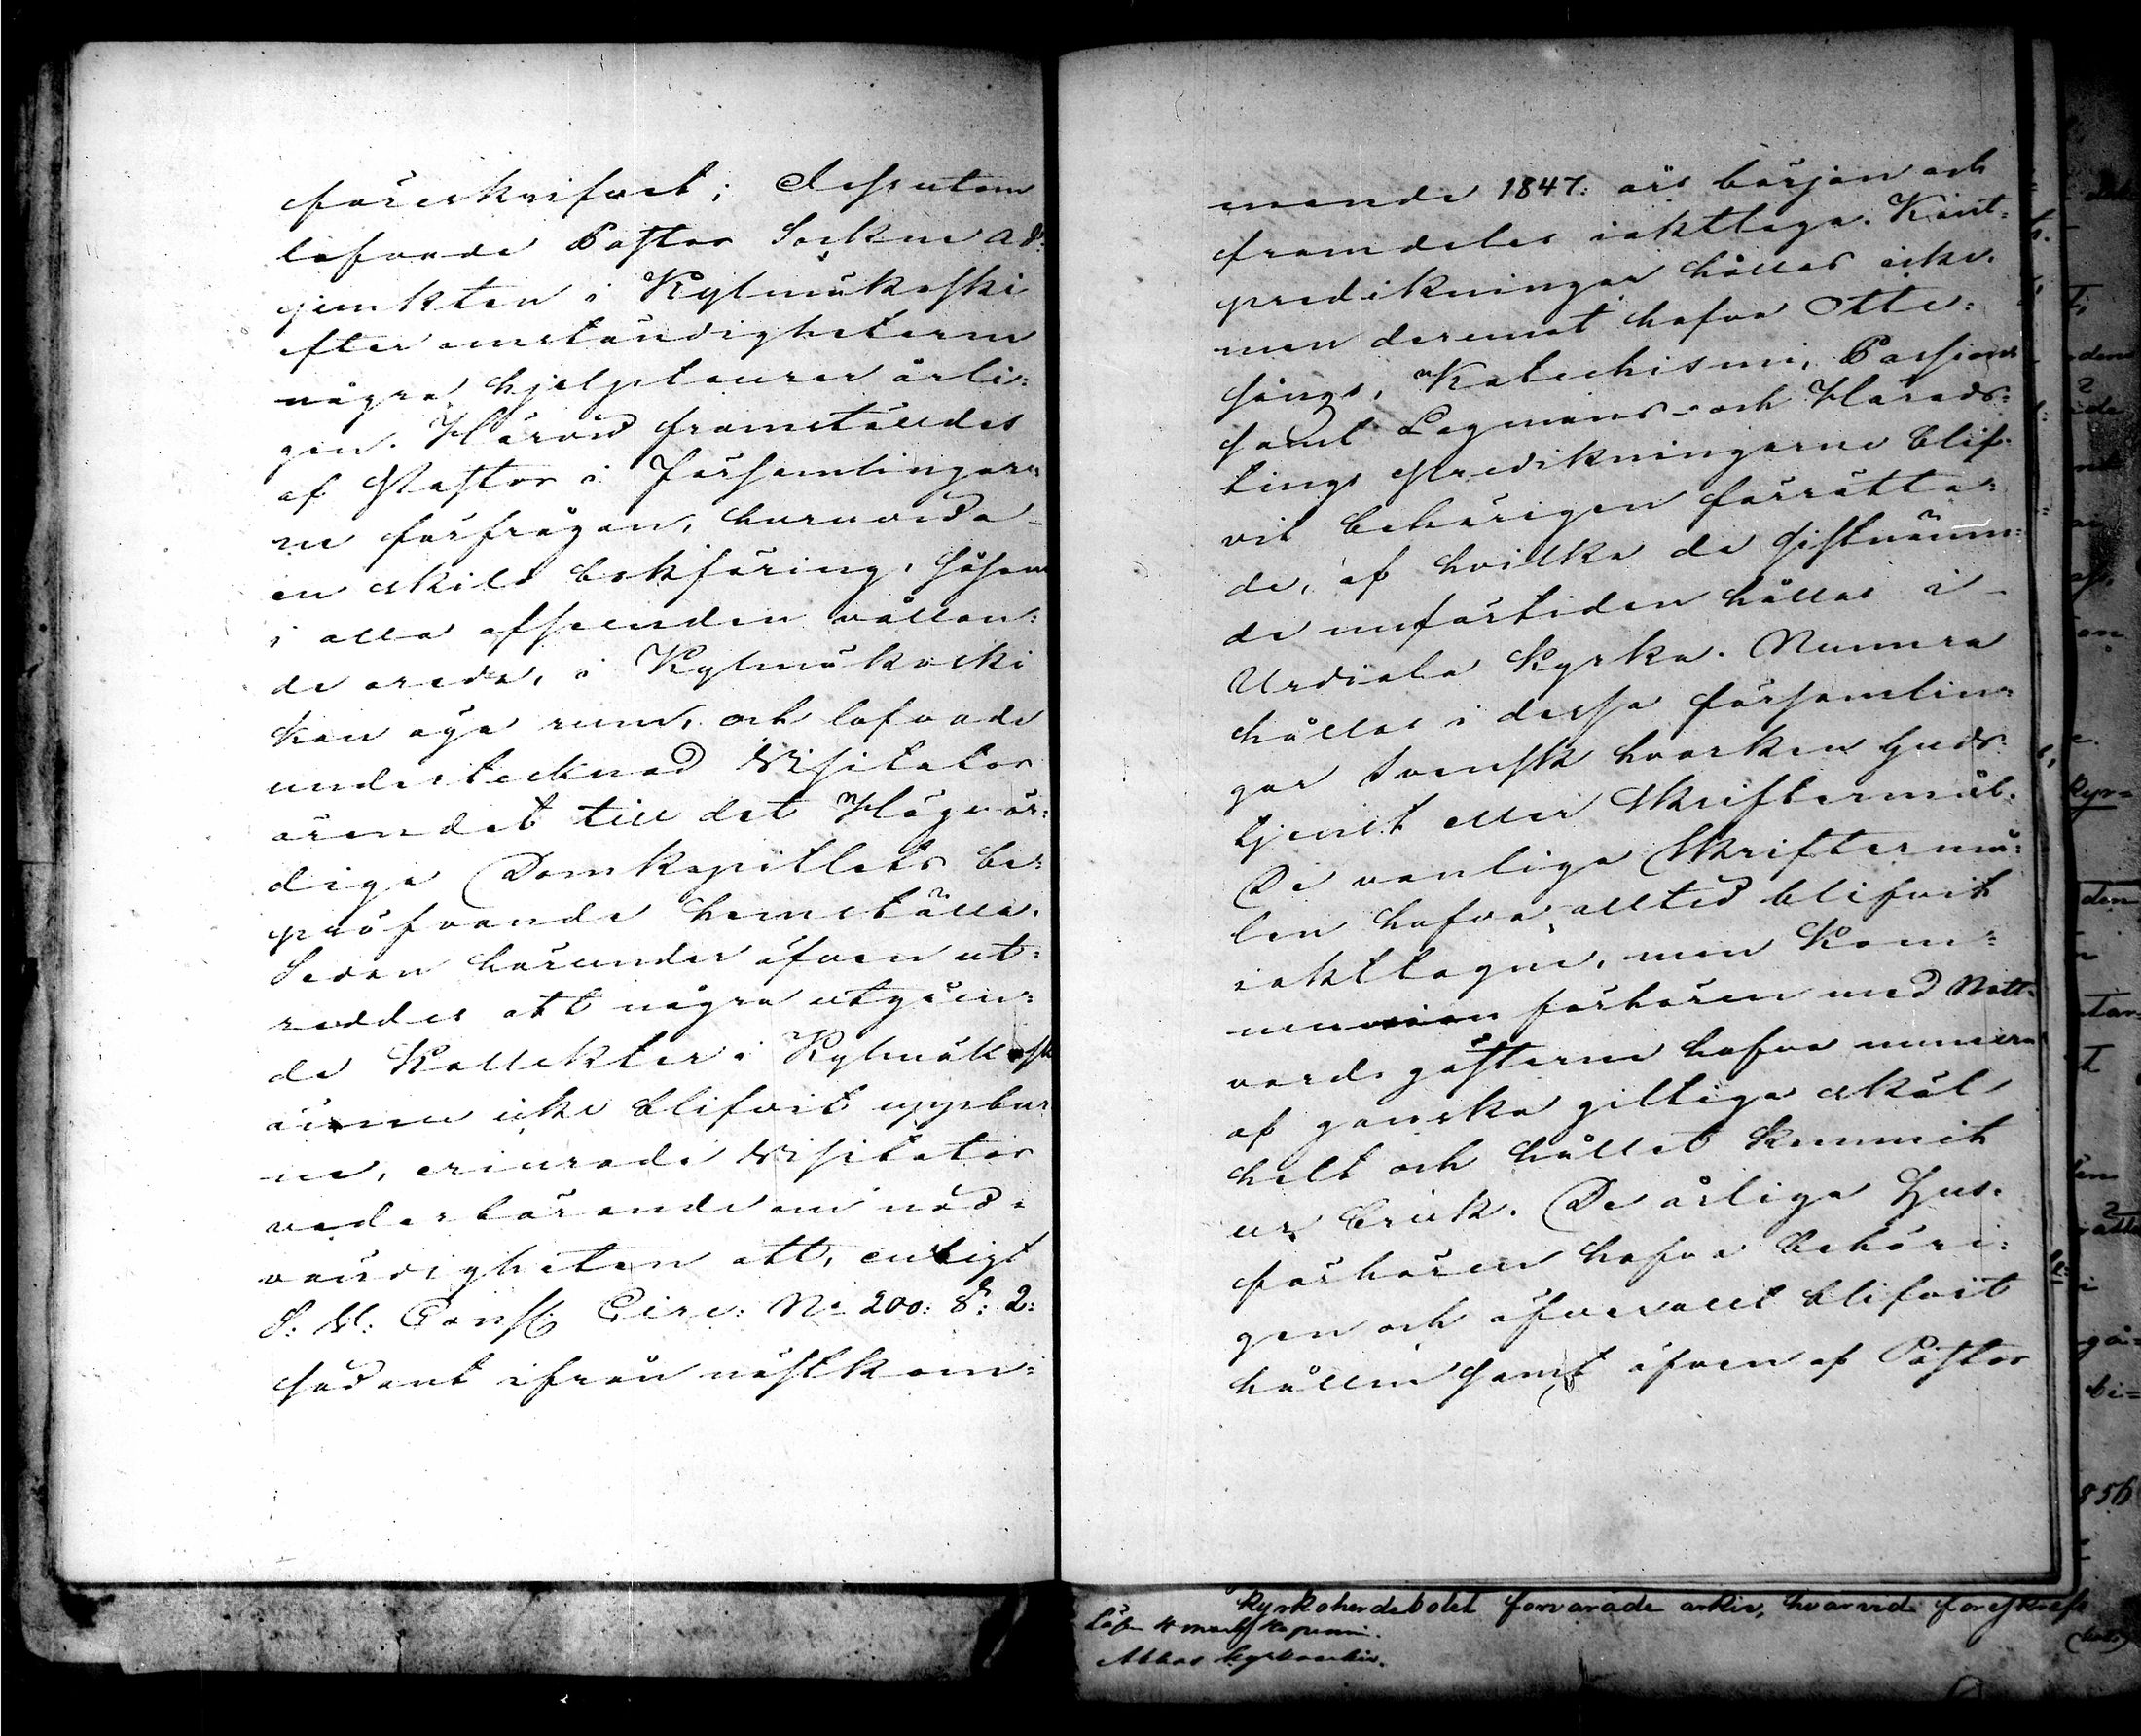 föreskrifvet; dessutom
lofvade Pastor Sockne ad:
junkten i Kylmäkoski
efter omständigheterna
några hjelpturer årli:
gen. Härvid framställdes
af Pastor i Församlingar:
ne förfrågan, huruvida
en skild bokföring, såsom
i alla afseenden vållan:
de oreda, i Kylmäkoski
kan äga rum, och lofvade
undertecknad Visitator
ärendet till det Högvör:
diga Domkapitlets be:
pröfvande hemställa.
Sedan härunder äfven ut:
reddes att några utgåen:
de Kollekter i Kylmäkoski
ännu icke blifvit uppbur
ne, erinrade Visitator
vederbörande om nöd:
vändigheten att, enligt
S. V. Consist. Circ: No 200: §: 2:
sådant ifrån nästkom:
mande 1847: års början och
framdeles iakttaga. Känt:
predikningar hållas icke.
men deremot hafva Otte:
sångs, Katechismi, Passions
samt Lagmans- och Härads:
tings predikningarne blif:
vit behörigen förrätta:
de, af hvilka de sistnämn:
de unfärtiden hållas i
Urdiala Kyrka. Numera
hållas i dessa församlin:
gar Svensk hvarken Guds:
tjenst eller Skriftermål.
De vanliga Skriftermå:
len hafva alltid blifvit
iakttagne, men Kom:
munion förhören med Natt:
vards gästerne hafva numera
af ganska giltiga skäl
helt och hållet kommit
ur bruk. De årliga Hus:
förhören hafva behöri:
gen och öfverallt blifvit
hållne samt äfven af Pastor
kyrkoherdebolet forvarade arkiv, hvarvid
Akkas kyrkoarkiv.